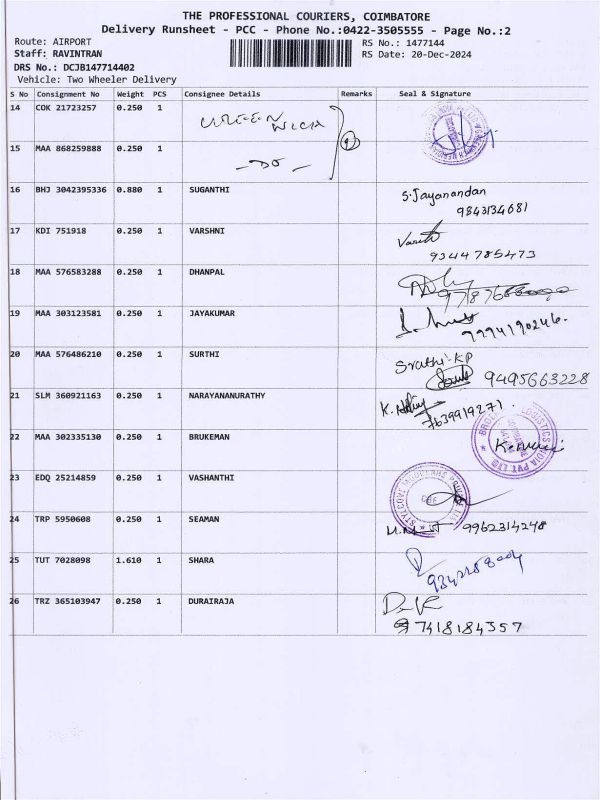 THE PROFESSIONAL COURIERS, COIMBATORE
Delivery Runsheet - PCC - Phone No.:0422-3505555 - Page No.:2
Route: AIRPORT
RS No.: 1477144
Staff: RAVINTRAN
RS Date: 20-Dec-2024
DRS No.: DCJB147714402
Vehicle: Two Wheeler Delivery
S No Consignment No Weight PCS Consignee Details Remarks Seal & Signature
14 COK 21723257 0.250 1
15 MAA 868259888 0.250 1 -DO-
16 BHJ 3042395336 0.880 1 SUGANTHI S.Jayanandan
9843134681
17 KDI 751918 0.250 1 VARSHNI
9344785473
18 MAA 576583288 0.250 1 DHANPAL
19 MAA 303123581 0.250 1 JAYAKUMAR
9994190246.
20 MAA 576486210 0.250 1 SURTHI Srathi-KP
9495663228
21 SLM 360921163 0.250 1 NARAYANANURATHY
7639919271.
22 MAA 302335130 0.250 1 BRUKEMAN
23 EDQ 25214859 0.250 1 VASHANTHI
24 TRP 5950608 0.250 1 SEAMAN 9962314248
25 TUT 7028098 1.610 1 SHARA
26 TRZ 365103947 0.250 1 DURAIRAJA
7418184357